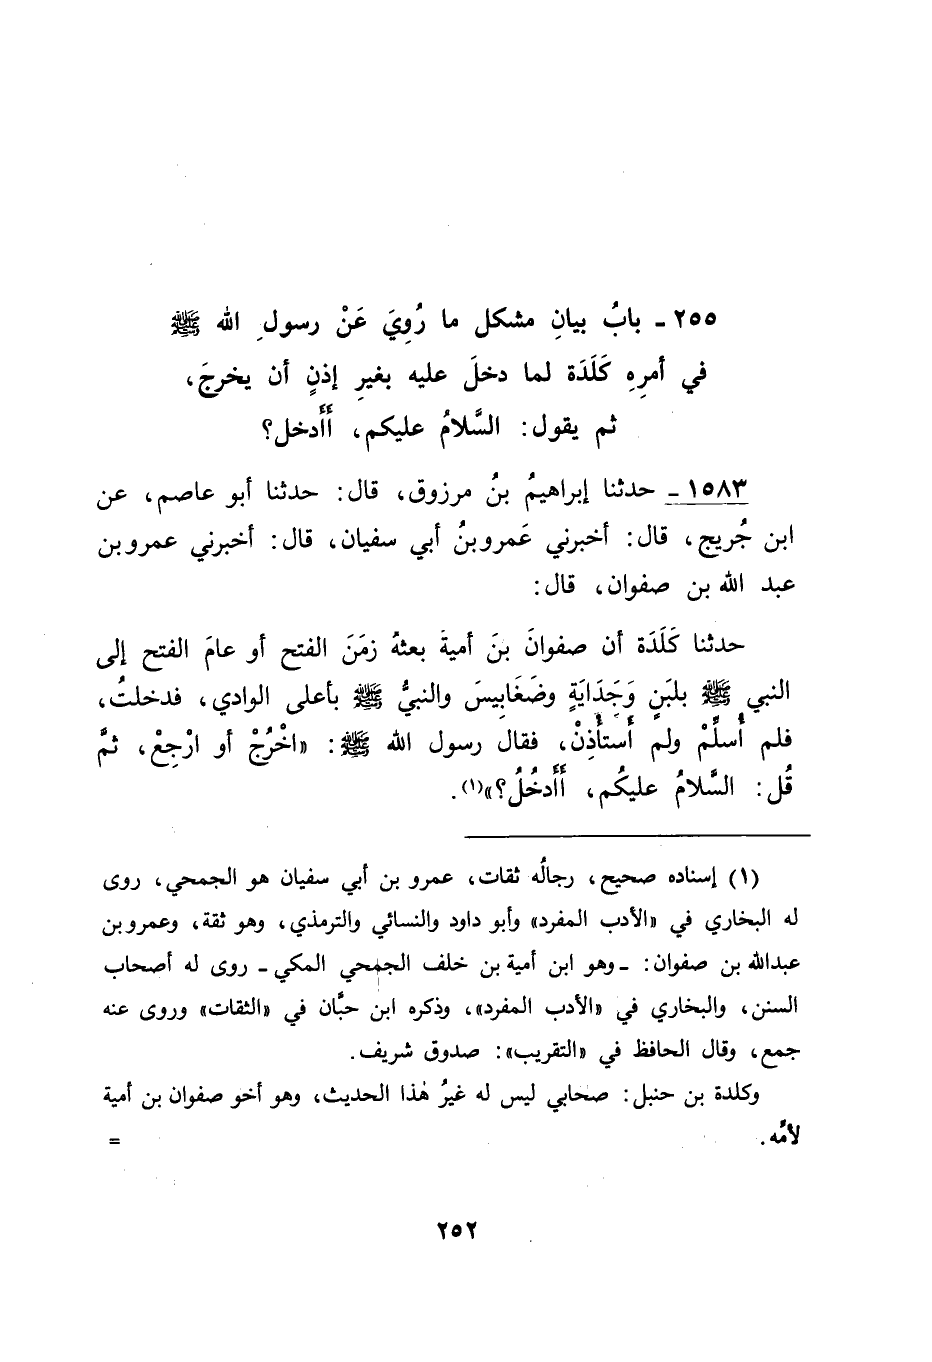 ٢٥٥ - بابُ بيانِ مشكل ما رُوِيَ عَنْ رسولِ الله ﷺ
في أمرِهِ كَلَدَة لما دخلَ عليه بغيرِ إذنٍ أن يخرجَ،
ثم يقول: السَّلامُ عليكم، أَأَدخل؟
١٥٨٣ - حدثنا إبراهيمُ بنُ مرزوق، قال: حدثنا أبو عاصم، عن
ابن جُريج، قال: أخبرني عَمرو بنُ أبي سفيان، قال: أخبرني عمرو بن
عبد الله بن صفوان، قال:
حدثنا كَلَدَة أن صفوانَ بنَ أميةَ بعثهُ زمَنَ الفتح أو عامَ الفتح إلى
النبي ﷺ بلبَنٍ وَجَدَايَةٍ وضَغَابِيسَ والنبيُّ ﷺ بأعلى الوادي، فدخلتُ،
فلم أُسلِّمْ ولم أَستأْذِنْ، فقال رسول الله ﷺ: «اخْرُجْ أو ارْجِعْ، ثمَّ
قُل: السَّلامُ عليكُم، أَأَدخُلُ؟»(١).
(١) إسناده صحيح، رجالُه ثقات، عمرو بن أبي سفيان هو الجمحي، روى
له البخاري في «الأدب المفرد» وأبو داود والنسائي والترمذي، وهو ثقة، وعمرو بن
عبدالله بن صفوان: - وهو ابن أمية بن خلف الجمحي المكي - روى له أصحاب
السنن، والبخاري في «الأدب المفرد»، وذكره ابن حبَّان في «الثقات» وروى عنه
جمع، وقال الحافظ في «التقريب»: صدوق شريف.
وكلدة بن حنبل: صحابي ليس له غيرُ هٰذا الحديث، وهو أخو صفوان بن أمية
لأمِّه. =
٢٥٢